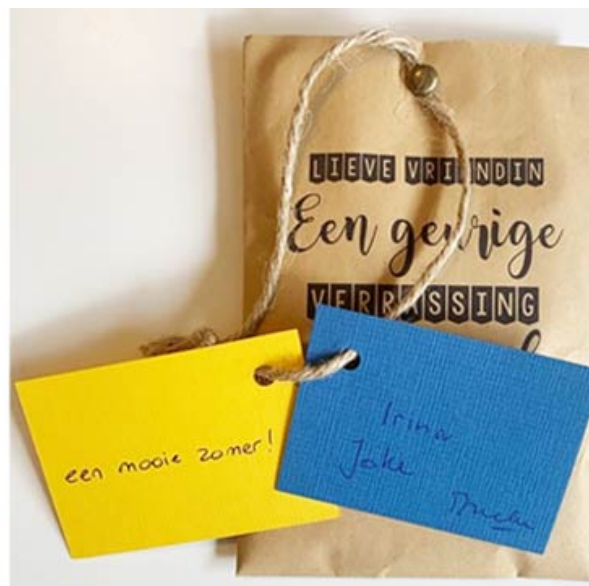 LIEVE VRIENDIN
Een geurige
VERRASSING
een mooie zomer!
Irina
Joke